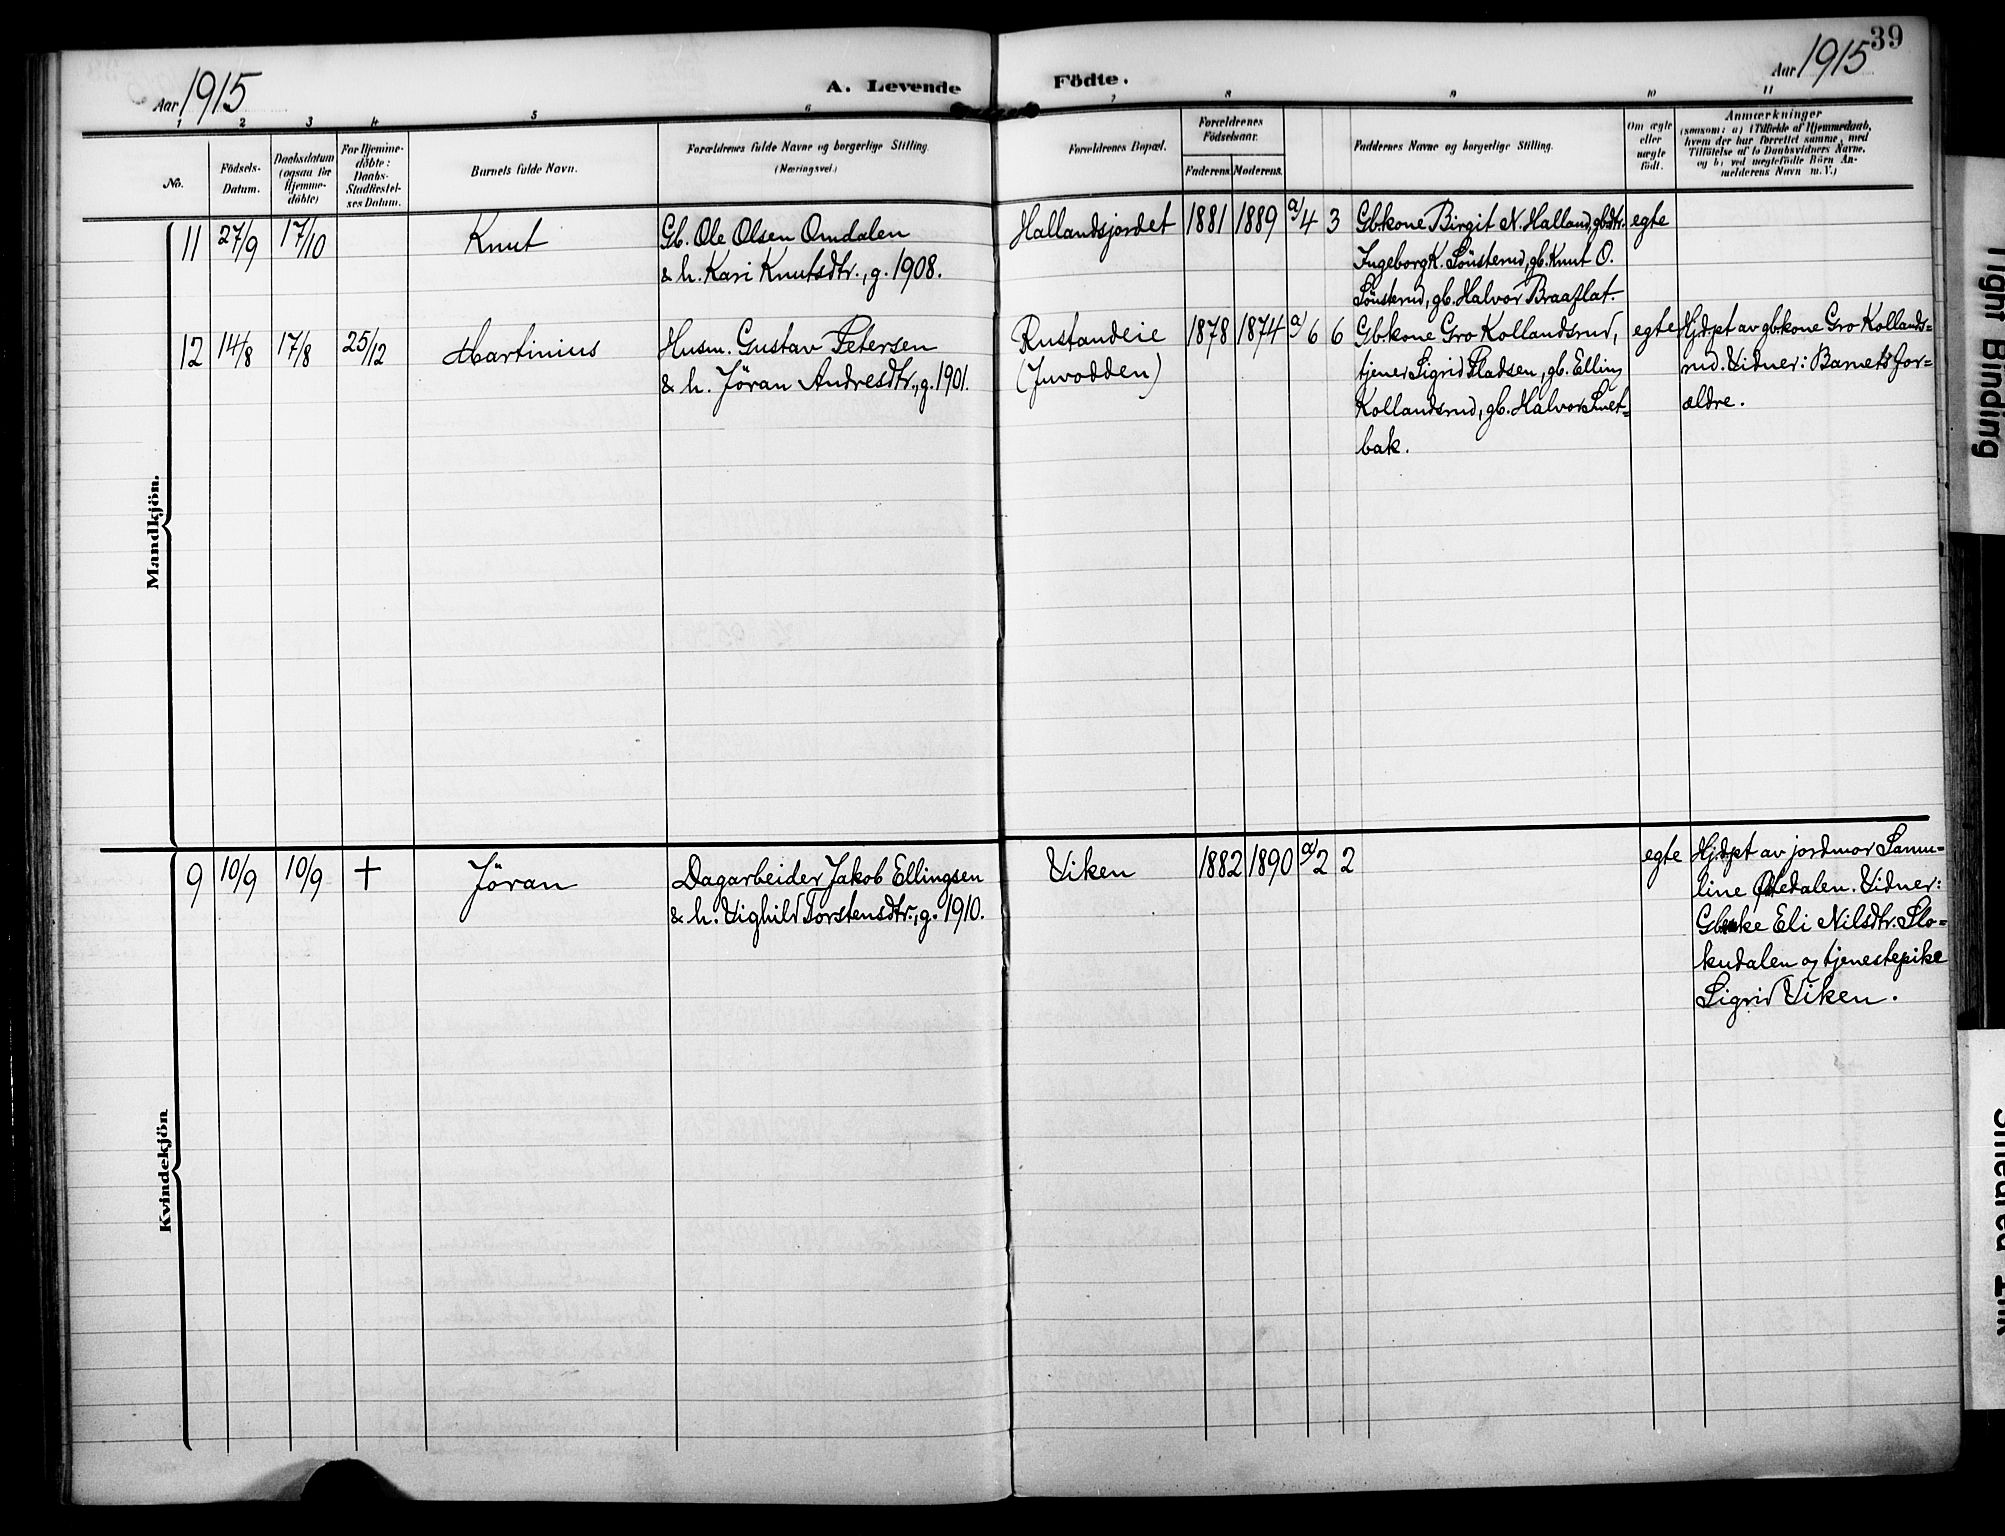 39
Aar 1915
A. Levende
Födte.
Aar 1915
1 2 3 4 5 6 7 8 9 10 11
No.
Födsels-
Datum.
Daabsdatum
(ogsaa for
Hjemme-
döbte)
For Hjemme-
döbte:
Daabs-
Stadfæstel-
ses Datum.
Barnets fulde Navn.
Forældrenes fulde Navne og borgerlige Stilling.
(Næringsvei.)
Forældrenes Bopæl.
Forældrenes
Födselsaar.
Faderens
Moderens
Faddernes Navne og borgerlige Stilling.
Om ægte
eller
uægte
født.
Anmærkninger
(saasom: a) i Tilfælde af Hjemmedaab,
hvem der har forrettet samme, med
Tilføielse af to Daabsvidners Navne,
og b) ved uægtefødte Börn An-
melderens Navn m. V.)
Mandkjön.
11 27/9 17/10 Knut
Gb. Ole Olsen Omdalen
& h. Kari Knutsdtr., g. 1908.
Hallandsjordet 1881 1889 a/4 3
Gbkone Birgit N. Halland, gbdtr.
Ingeborg K. Sönsterud, gb. Knut O.
Sönsterud, gb. Halvor Braaflat.
egte
12 14/8 17/8 25/12 Martinius
Husm. Gustav Petersen
& h. Jöran Andresdtr., g. 1901.
Rustandeie
(Juvodden)
1878 1874 a/6 6
Gbkone Gro Kollandsrud,
tjener Sigrid Pladsen, gb. Elling
Kollandsrud, gb. Halvor Smet-
bak.
egte
Hjdpt av gbkone Gro Kollands-
rud. Vidner: Barnets For-
ældre.
Kvindekjön
9 10/9 10/9 + Jöran
Dagarbeider Jakob Ellingsen
& h. Vighild Torstensdtr., g. 1910.
Viken 1882 1890 a/2 2
egte
Hjdpt av jordmor Samu-
line Ödedalen. Vidner:
Gbenke Eli Nilsdtr. Slo-
kudalen og tjenestepike
Sigrid Viken.
Tight Binding
Smeared Ink